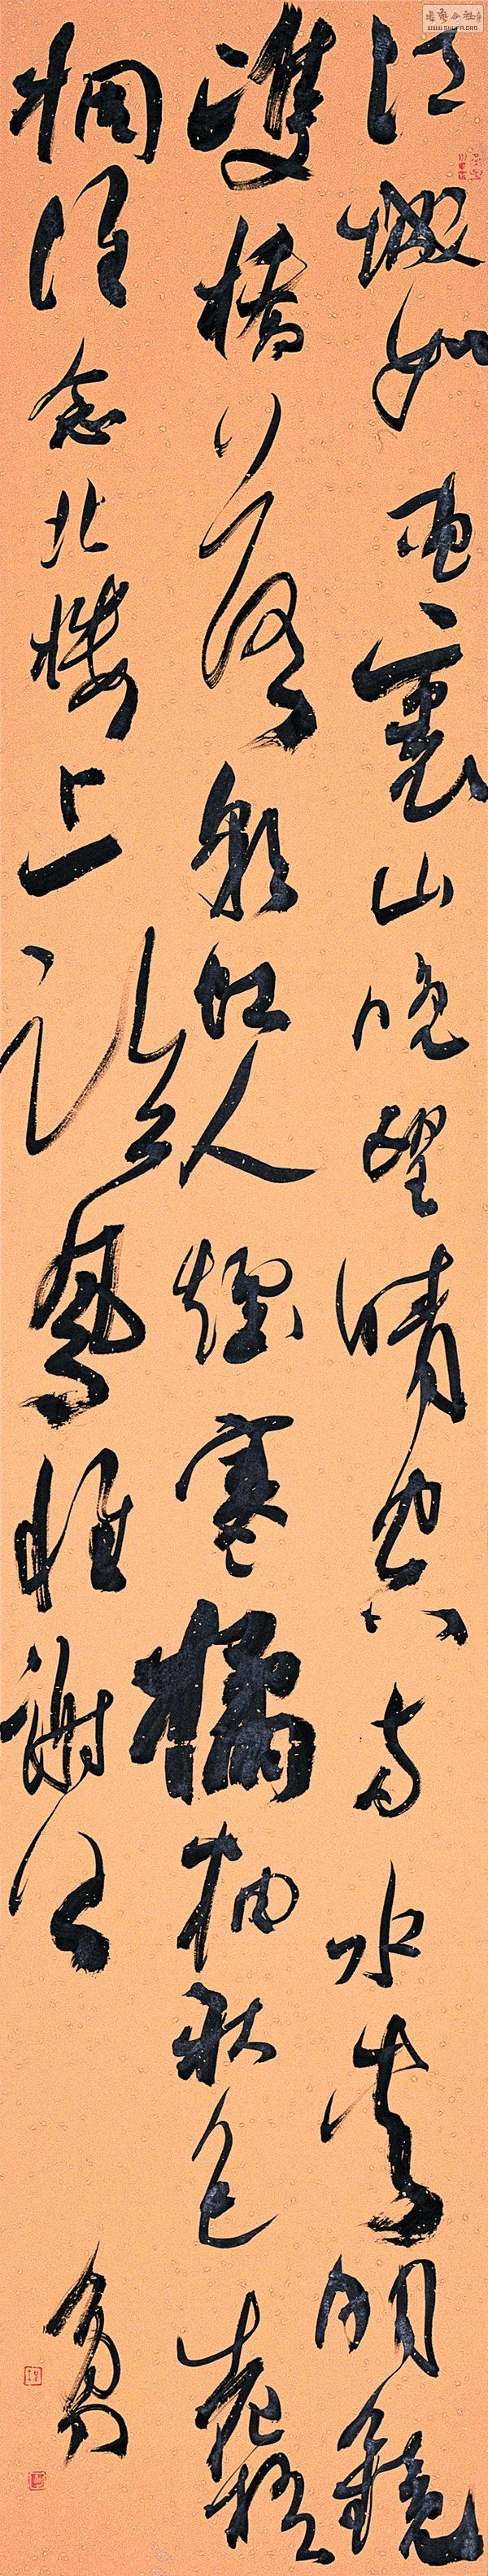 江城如畫裏山晚望晴空兩水夾明鏡
雙橋落彩虹人煙寒橘柚秋色老梧
桐誰念北樓上臨風懷謝公
WWW.SHUFA.ORG